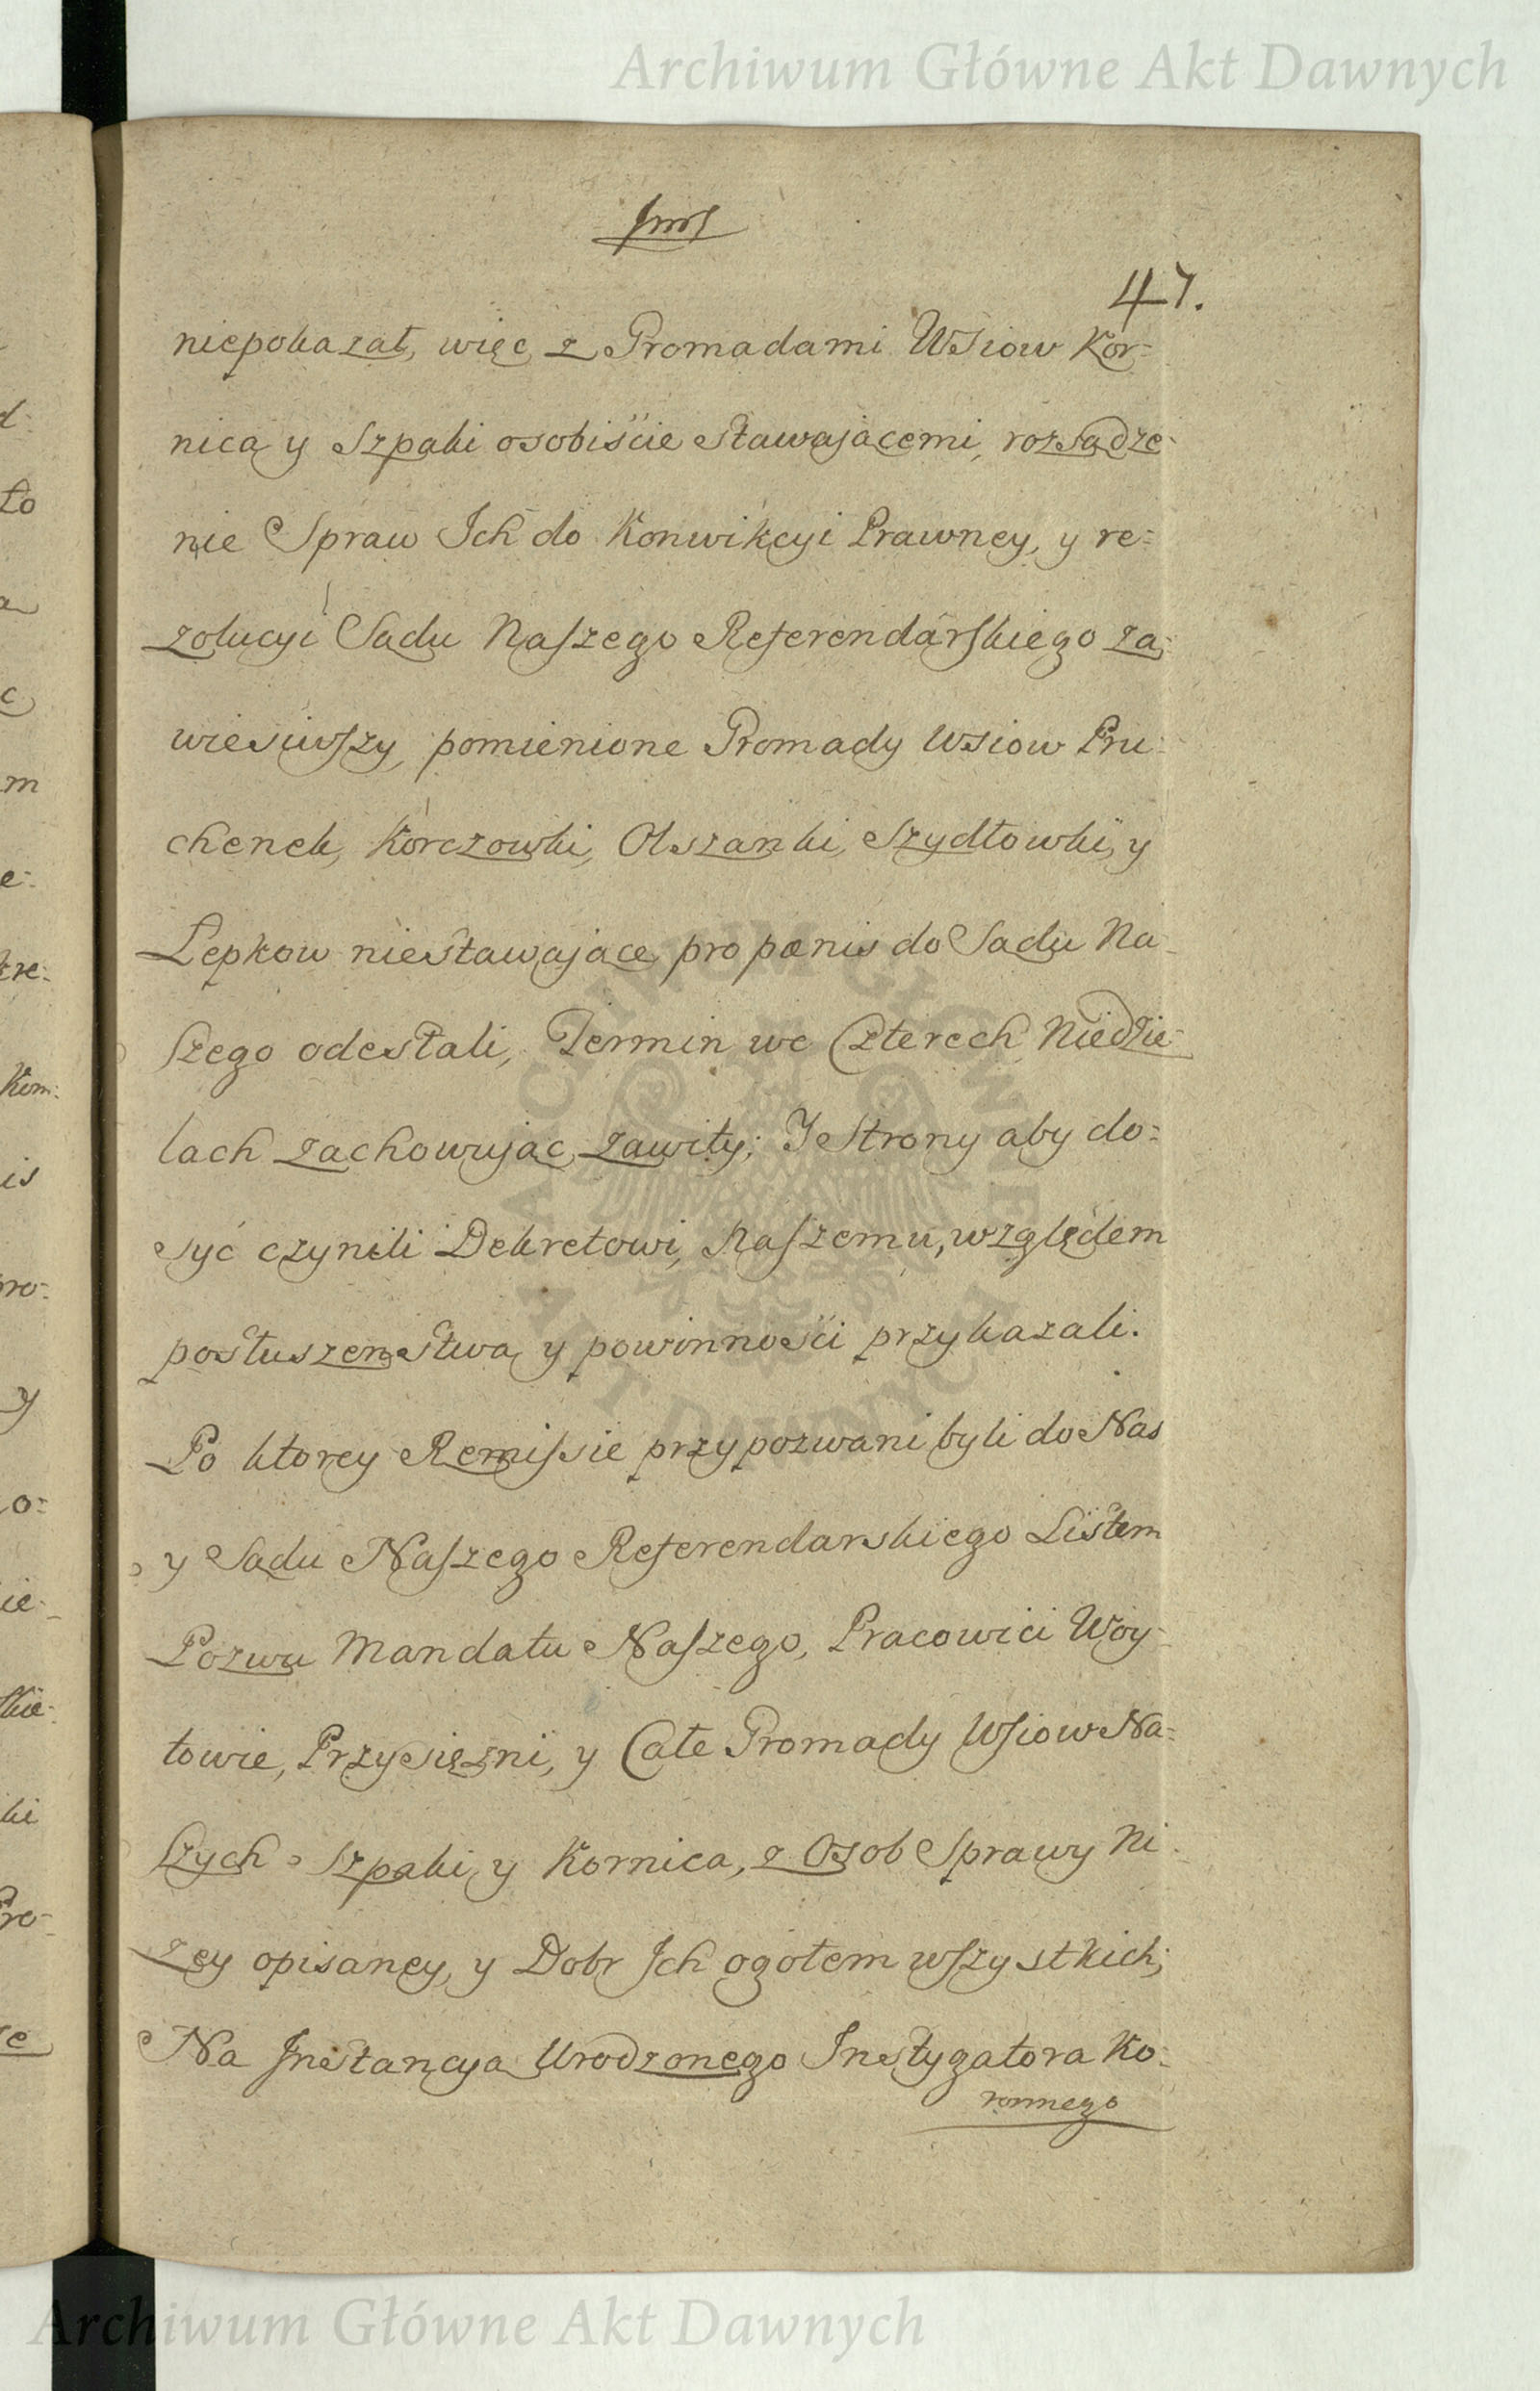 Archiwum Główne Akt Dawnych
47.
niepokazał, więc z Gromadami Wsiow Kor=
nica y Szpaki osobiście stawaiącemi, rozsądze=
nie Spraw Ich do Konwikcyi Prawney, y re=
zolucyi Sądu Naszego Referendarskiego za=
wiesiwszy, pomienione Gromady Wsiow Pru=
chenek, Korczowki, Olszanki, Szydłowki, y
Łepkow niestawaiące, pro pænis do Sądu Na=
szego odesłali, Termin we Czterech Niedzie=
lach zachowuiąc zawity; Y Strony aby do=
syć czynili Dekretowi Naszemu, względem
posłuszenstwa y powinności przykazali.
Po ktorey Remissie przypozwani byli do Nas
y Sądu Naszego Referendarskiego Listem
Pozwu Mandatu Naszego, Pracowici Woy=
towie, Przysiężni, y Całe Gromady Wsiow Na=
szych Szpaki, y Kornica, z Osob Sprawy Ni=
żey opisaney, y Dobr Ich ogołem wszystkich;
Na Instancyą Urodzonego Instygatora Ko=
ronnego
ARCHIWUM GŁÓWNE AKT DAWNYCH
Archiwum Główne Akt Dawnych